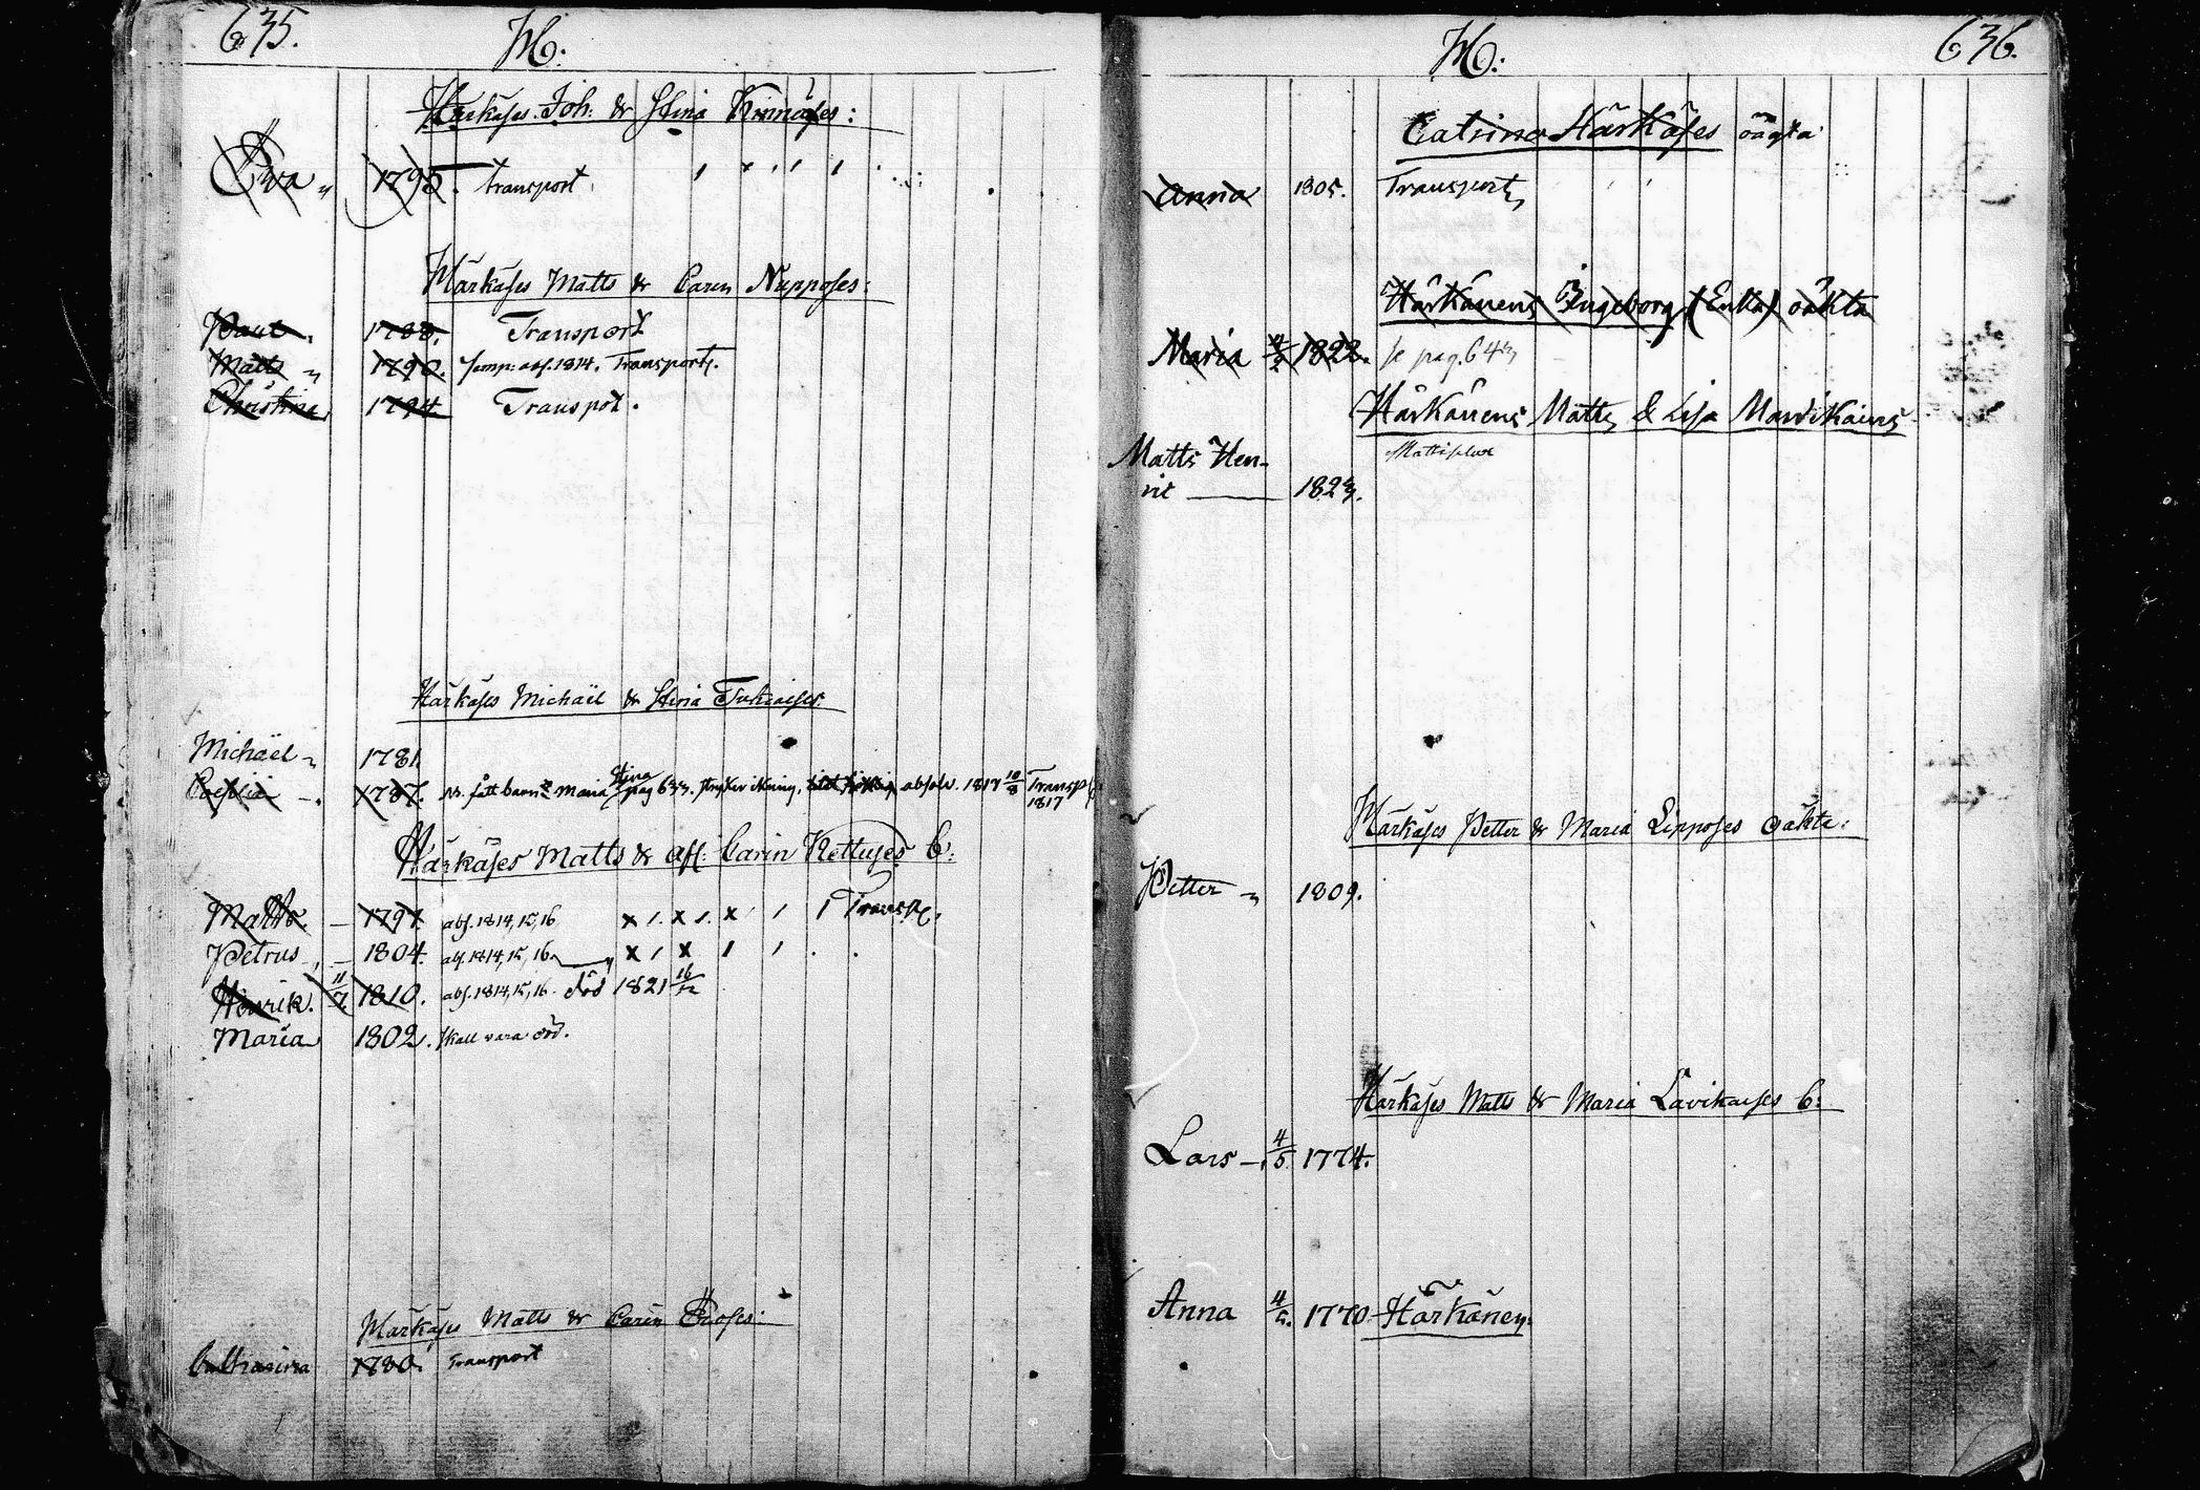 635.
H:
Härkäses Joh: & Stina Kinnases:
Eva 1795. transport
Härkäses Matts & Carin Nupposes:
Paul 1788. Transport
Matts 1790. abs. 1814. Transport.
Christina 1794 Transpot.
Härkäses Michaël & Stina Tukiaises:
Michaël 1781.
1787. fått barn Maria Stina pag 633. absolv. 1817 10/8 Transp
1817
Härkäses Matts & afl: Carin Kettuses b:
Matts. 1797. abs. 1814, 15, 16 x 1. x 1. x 1 1 Transp.
Petrus 1804. abs. 1814, 15, 16 x 1 x 1 1
Henrik. 11/7 1810. abs. 1814, 15, 16. död 1821 16/12
Maria 1802. skall vara död.
Härkäses Matts & Carin
Cathrina 1780. Transport
636.
H:
Catrina Härkäses oägta
Anna 1805. Transport
Härkänens Ingeborg (Enka) oäkta
Maria 1822. se pag. 643
Härkänens Matts & Lisa
Matts Hen-
ric 1823.
Härkäses Petter & Maria Lipposes oäkte:
Petter 1809.
Härkäses Matts & Maria Lavikaises b:
Lars 4/5 1774.
Anna 1770 Härkänen